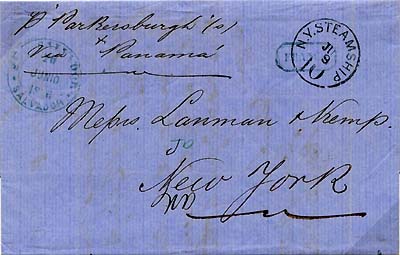 pr Parkersburgh (s)
via Panamá
N.Y. STEAMSHIP
9
10
SALVADOR
Messrs. Lanman & Kemp.
New York